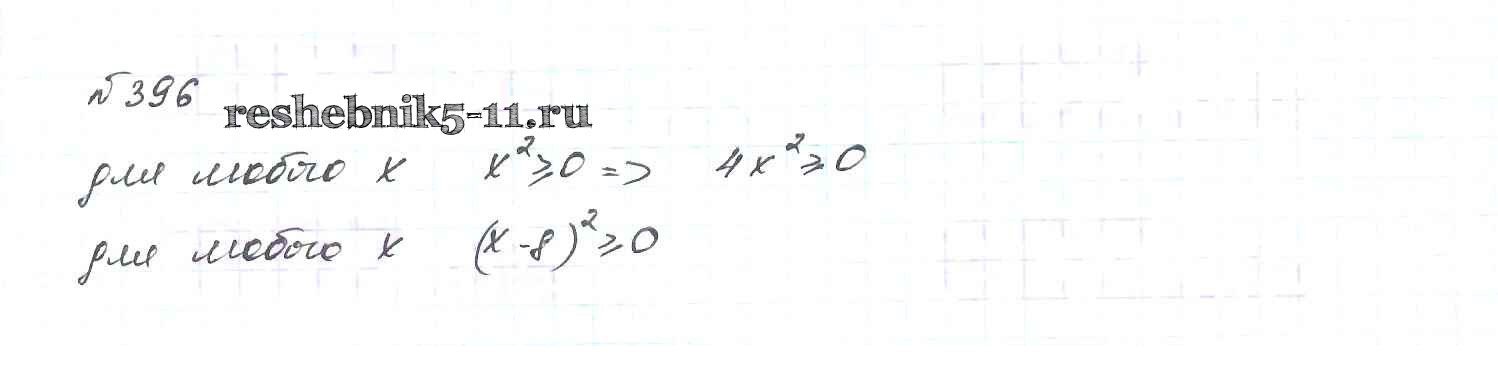 № 396
reshebnik5-11.ru
для любого x x² ≥ 0 => 4x² ≥ 0
для любого x (x - 8)² ≥ 0